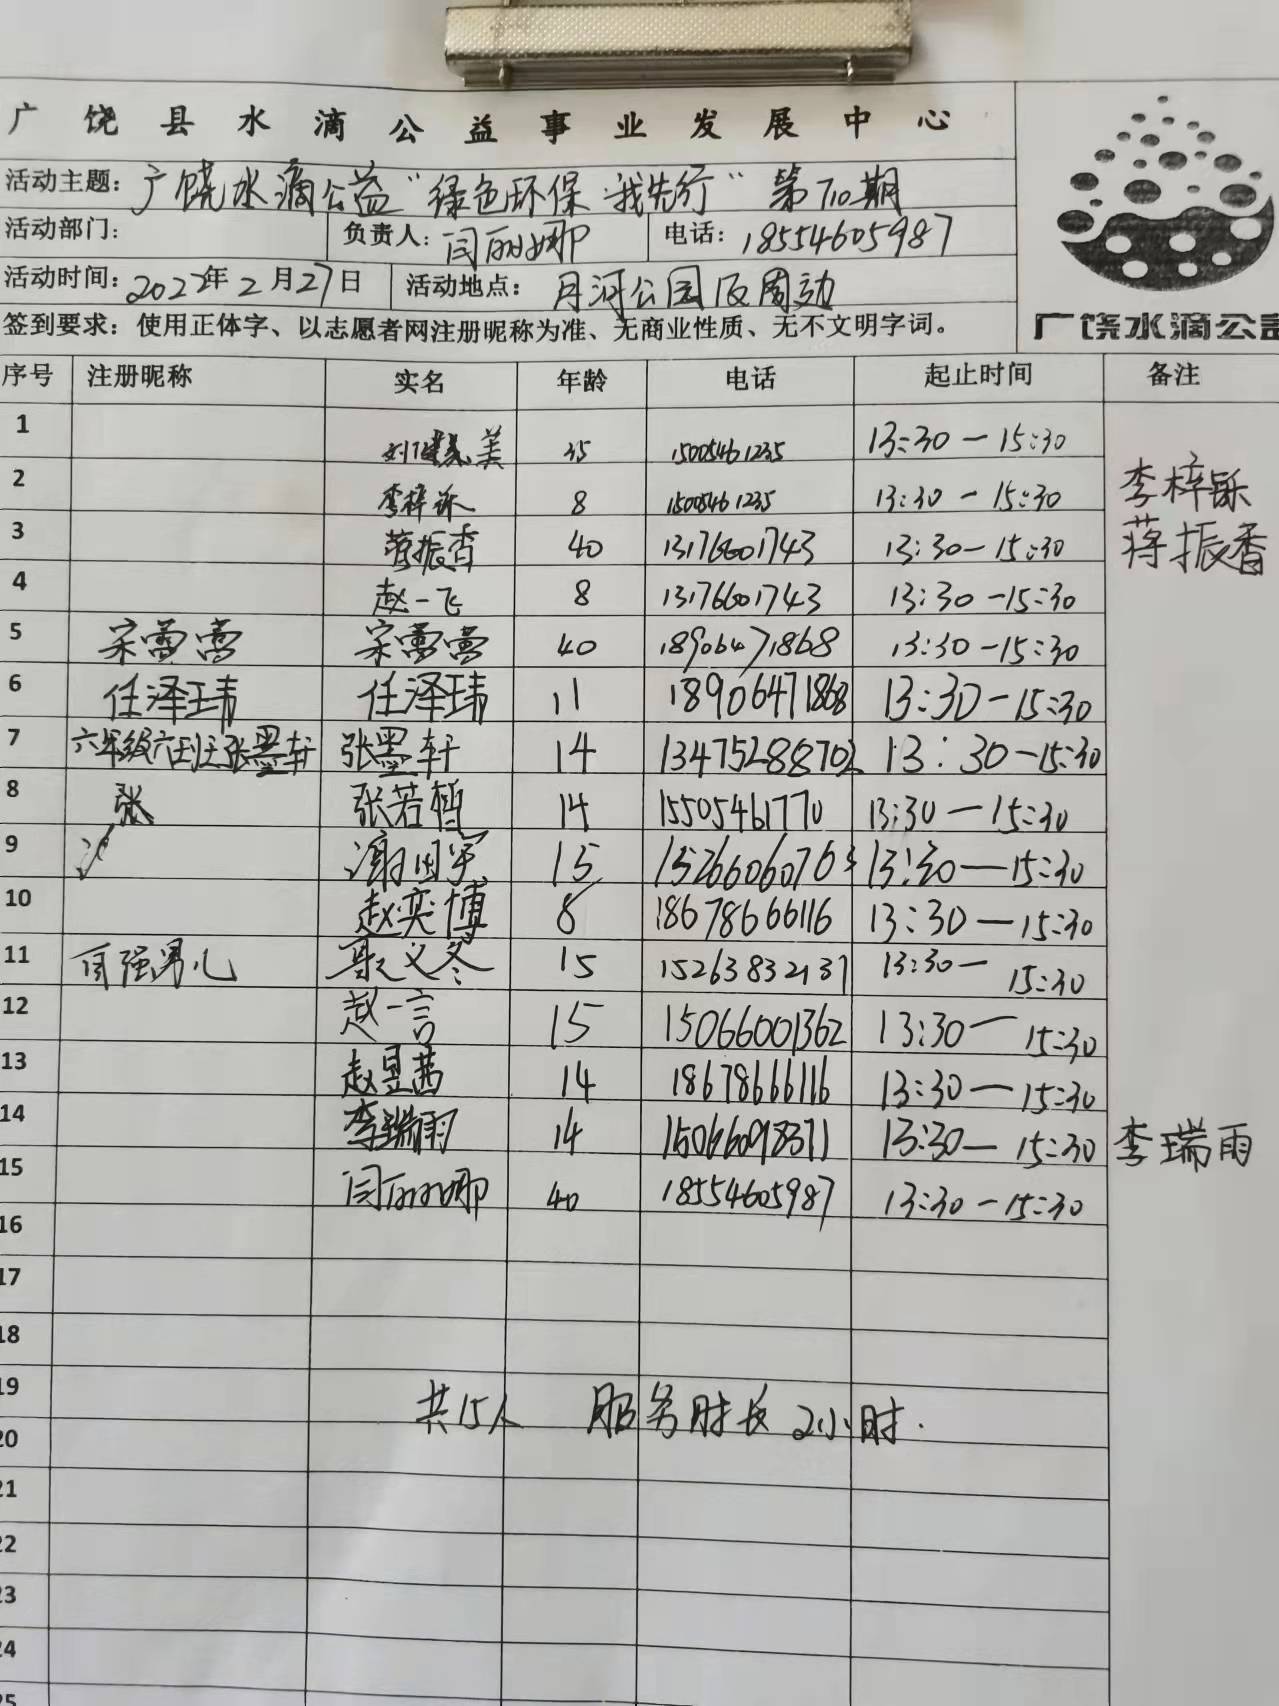 广饶县水滴公益事业发展中心
活动主题：广饶水滴公益“绿色环保 我先行”第710期
活动部门： 负责人：闫丽娜 电话：18554605987
活动时间：2022年2月27日 活动地点：月河公园及周边
签到要求：使用正体字、以志愿者网注册昵称为准、无商业性质、无不文明字词。
广饶水滴公益
序号 注册昵称 实名 年龄 电话 起止时间 备注
1 美 35 15005461235 13:30-15:30
2 李梓铄 8 15005461235 13:30-15:30 李梓铄
3 蒋振香 40 13176601743 13:30-15:30 蒋振香
4 赵一飞 8 13176601743 13:30-15:30
5 宋蕾蕾 宋蕾蕾 40 18906471868 13:30-15:30
6 任泽玮 任泽玮 11 18906471868 13:30-15:30
7 六年级六班张墨轩 张墨轩 14 13475288702 13:30-15:30
8 张 张若皙 14 15505461770 13:30-15:30
9 15 15266060763 13:30-15:30
10 赵奕博 8 18678666116 13:30-15:30
11 自强男儿 聂义冬 15 15263832137 13:30-15:30
12 赵一言 15 15066001362 13:30-15:30
13 赵昱茜 14 18678666116 13:30-15:30
14 李瑞雨 14 15066098371 13:30-15:30 李瑞雨
15 闫丽娜 40 18554605987 13:30-15:30
16
17
18
19
共15人 服务时长2小时.
20
21
22
23
24
25